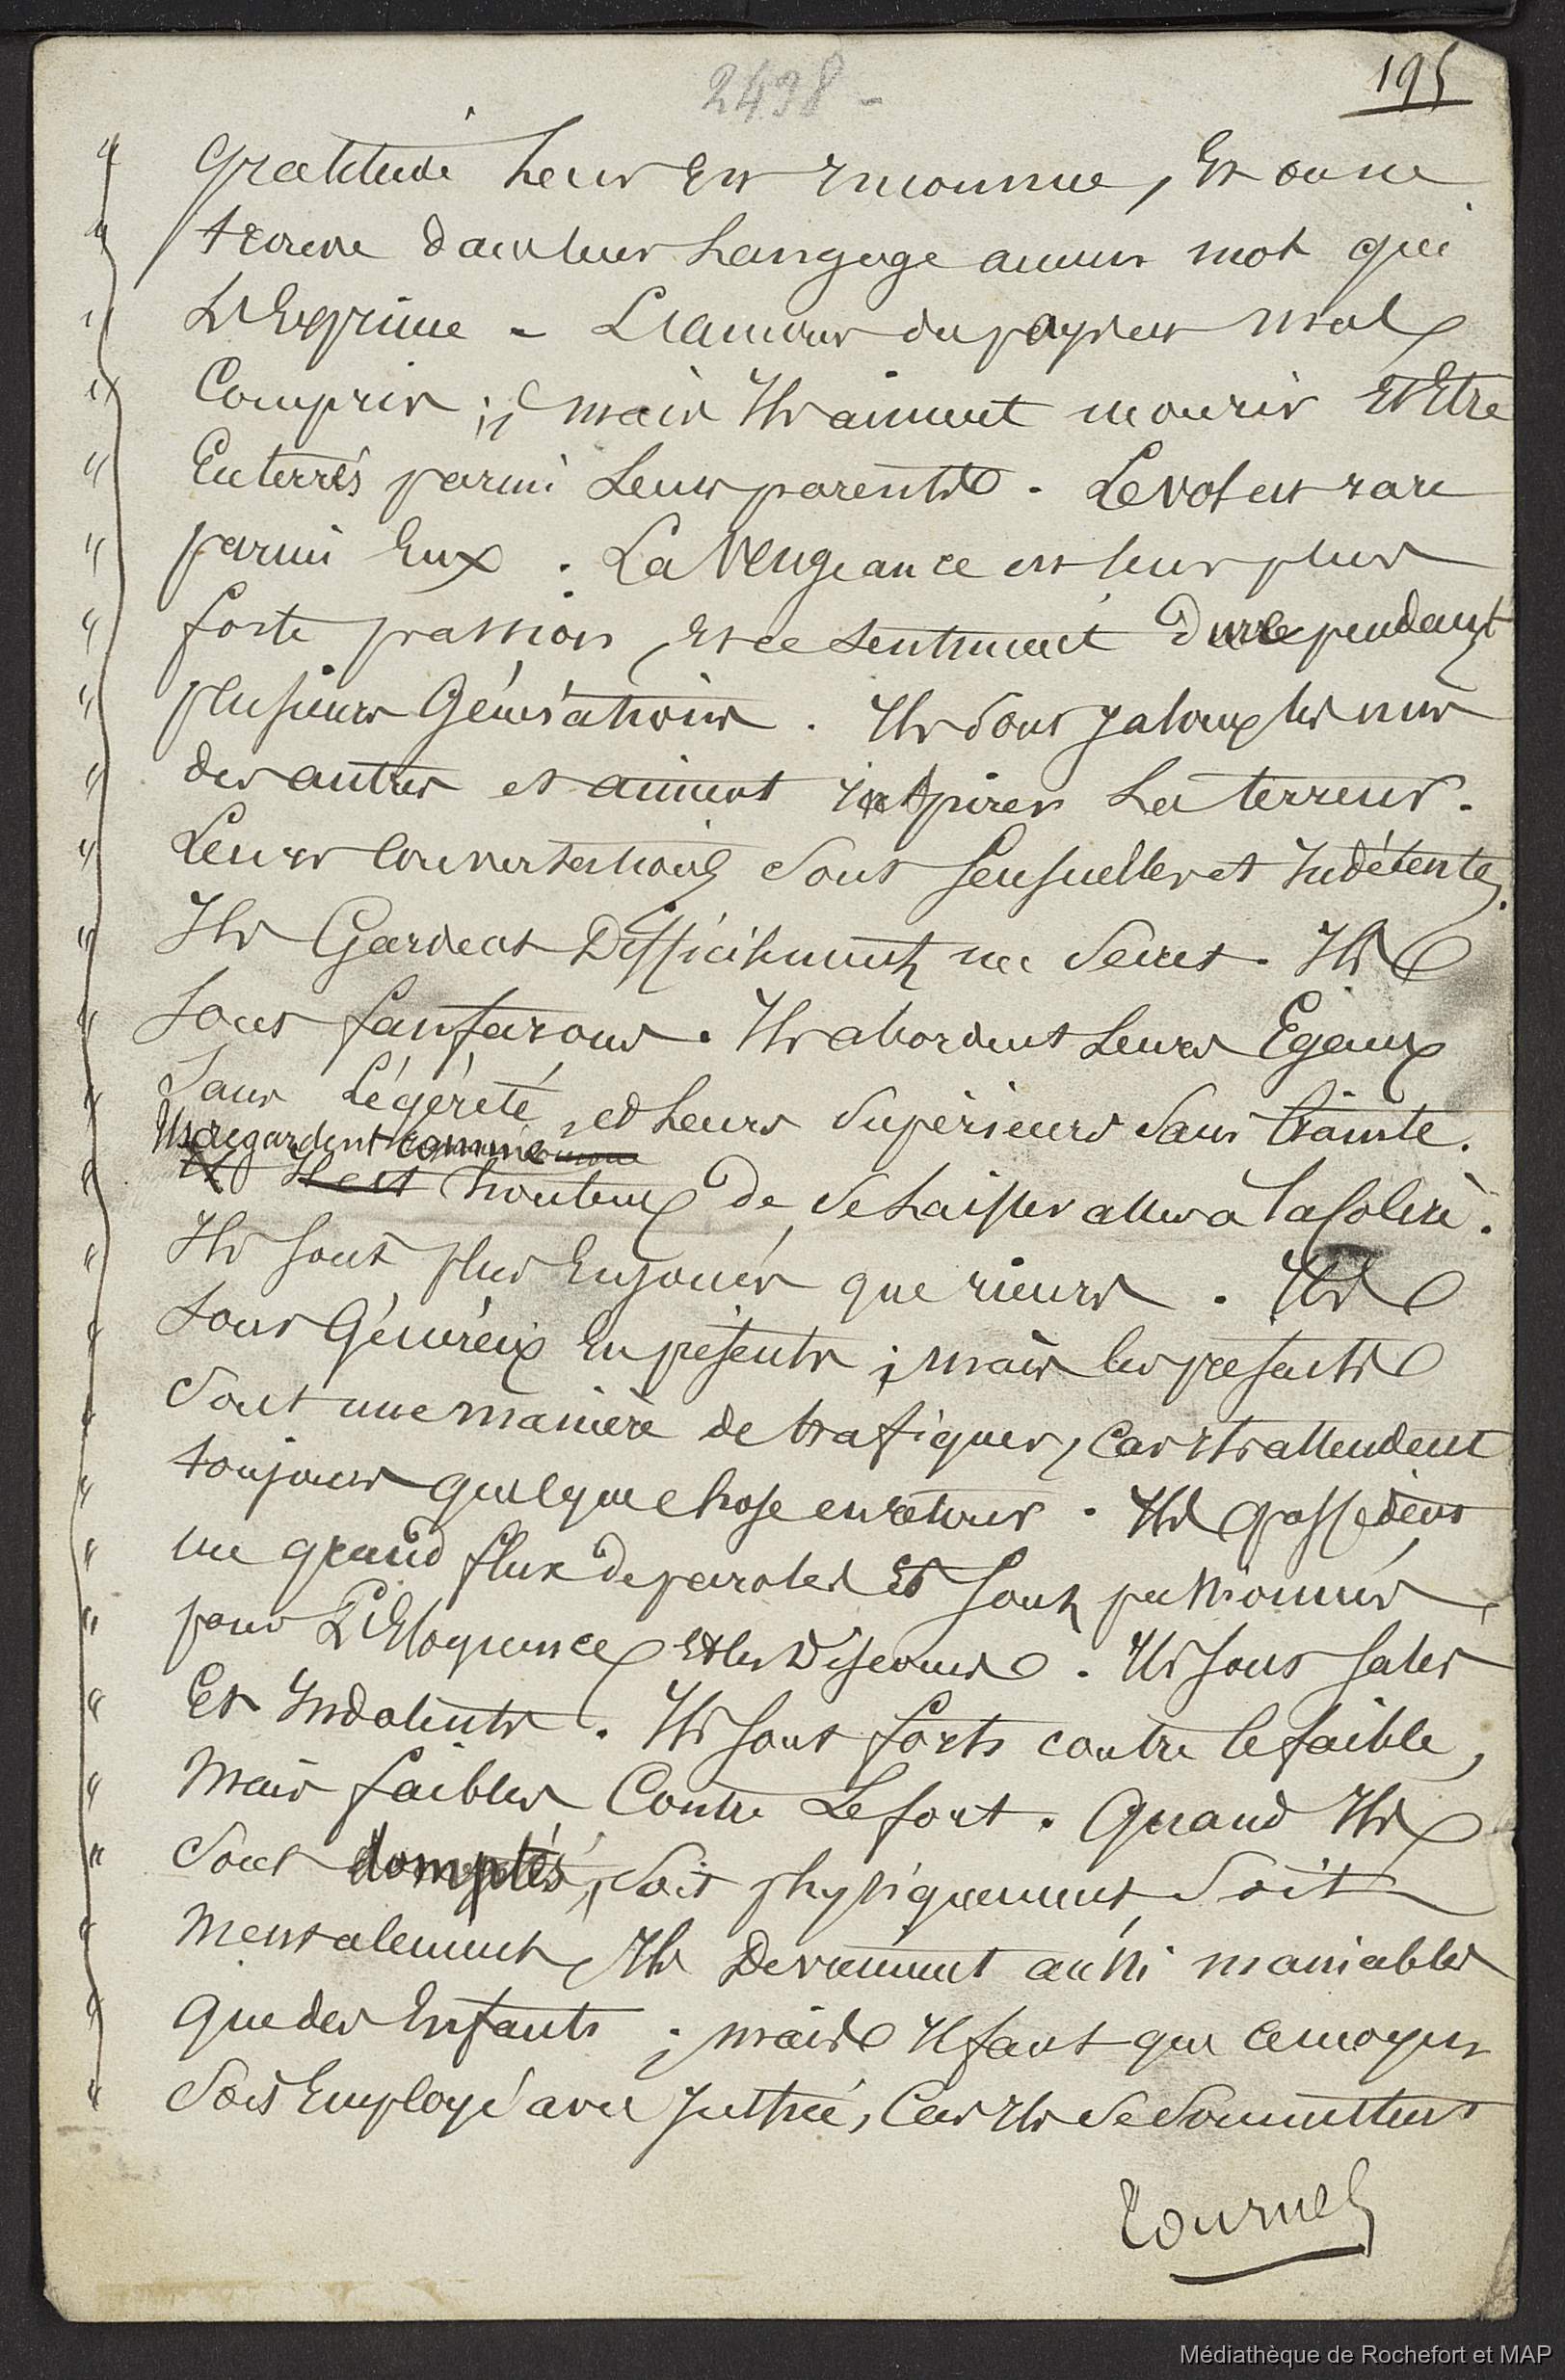 2498 -
195
" gratitude leur est inconnue, Et on ne
" trouve dans leur Langage aucun mot qui
" L'Exprime - L'amour du pays est mal
" Compris ; mais Ils aiment mourir Et Etre
" Enterrés parmi Leurs parents. Le vol est rare
" parmi Eux. La Vengeance est leur plus
" forte passion, Et ce sentiment dure pendant
" plusieurs Générations. Ils sont jaloux les uns
" des autres et aiment inspirer La terreur.
" Leurs Conversations sont sensuelles et Indécentes.
" Ils Gardent Difficilement un Secret. Ils
" sont fanfarons. Ils abordent Leurs Egaux
" Sans Légéreté, et Leurs Supérieurs Sans Crainte.
Ils regardent comme
" Il est honteux de se Laisser aller à la Colère.
" Ils sont plus Enjoués que rieurs. Ils
" sont Généreux En présents ; mais les presents
" sont une manière de trafiquer, car Ils attendent
" toujours quelque chose en retour. Ils possèdent
" un grand flux de paroles Et sont passionnés
" pour L'Eloquence Et les Discours. Ils sont sales
" Et Indolents. Ils sont forts contre le faible,
" Mais faibles Contre Le fort. Quand Ils
" sont domptés, soit physiquement, soit
" Mentalement, Ils Deviennent aussi maniables
" que des Enfants ; mais Il faut que ce moyen
" soit Employé avec Justice, Car Ils se soumettent
tournez
Médiathèque de Rochefort et MAP